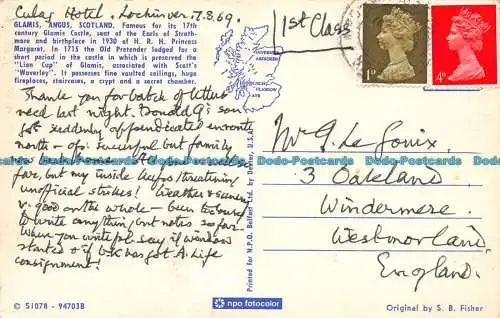 Culag Hotel, Lochinver. 17.8.69.
GLAMIS, ANGUS, SCOTLAND. Famous for its 17th
century Glamis Castle, seat of the Earls of Strath-
more and birthplace in 1930 of H. R. H. Princess
Margaret. In 1715 the Old Pretender lodged for a
short period in the castle in which is preserved the
"Lion Cup" of Glamis, associated with Scott's
"Waverley". It possesses fine vaulted ceilings, huge
fireplaces, staircases, a crypt and a secret chamber.
Thank you for batch of letters
recd last night. Donald G's son
got suddenly appendicitis en route
north - op: successful but family
so far, but my inside
unofficial strikes! Weather & scenery
v. good on the whole - been too busy
to write anything, but notes so far.
When you write pl. say if window
started & if has got A. Life
consignment!
1st Class
1D
4D
ABERDEEN
GLASGOW
AYR
Mr G. Le
3 Oakland
Windermere
Westmorland,
England.
Printed for N.P.O. Belfast Ltd. by Dexter, U.S.A.
© 51078 - 94703B
npo fotocolor
Original by S. B. Fisher
Dado-Postcards.Com